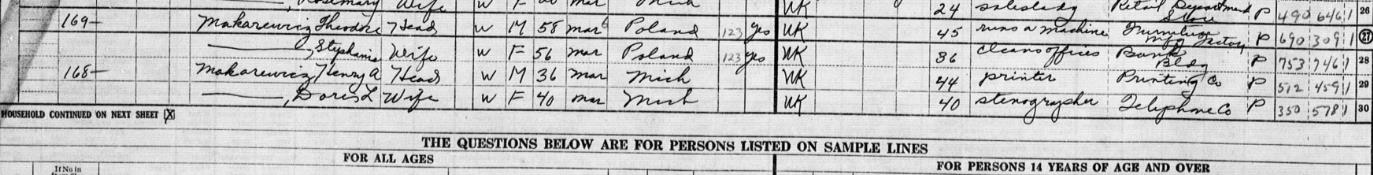 Rosemary Wife W F Mar Mich UK 24 saleslady Retail Department Store P 490 646 1 26
169 Makarewicz, Theodore Head W M 58 mar Poland 123 yes UK 45 runs a machine Furniture Mfg Factory P 690 309 1 27
———, Stephanie Wife W F 56 mar Poland 123 yes UK 36 cleans offices Bank Bldg P 753 746 1 28
168 Makarewicz, Henry A Head W M 36 mar Mich UK 44 printer Printing Co P 512 459 1 29
———, Doris L Wife W F 40 mar Mich UK 40 stenographer Telephone Co P 350 578 1 30
HOUSEHOLD CONTINUED ON NEXT SHEET [X]
THE QUESTIONS BELOW ARE FOR PERSONS LISTED ON SAMPLE LINES
FOR ALL AGES FOR PERSONS 14 YEARS OF AGE AND OVER
If No in